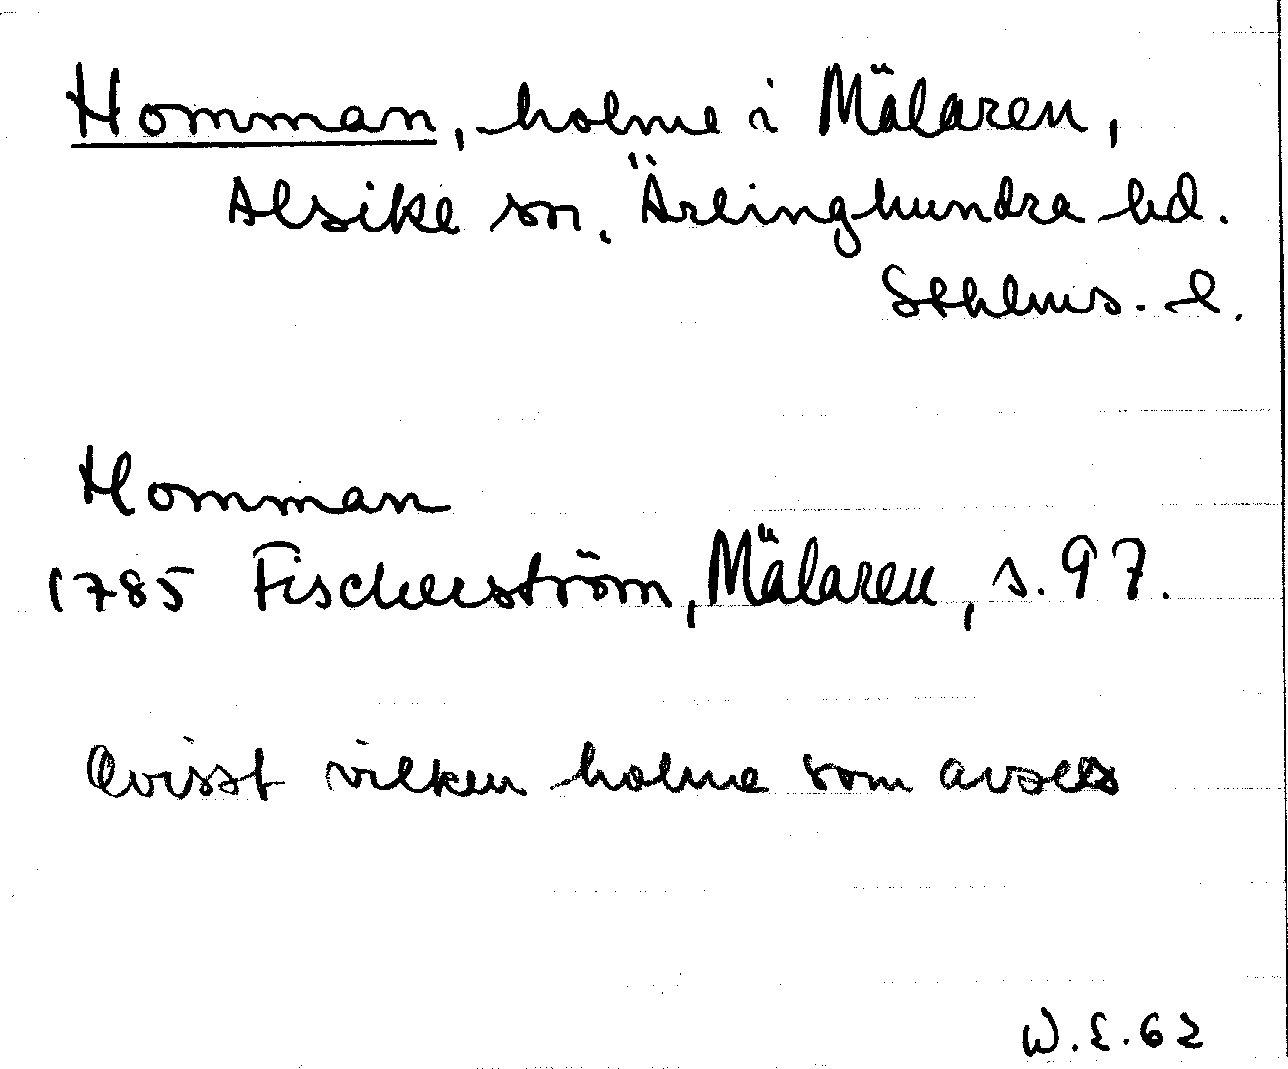 Homman, holme i Mälaren,
Alsike sn. Ärlinghundra hd.
Sthlms. l.
Homman
1785 Fischerström, Mälaren, s. 97.
Ovisst vilken holme som avses
W.E.62